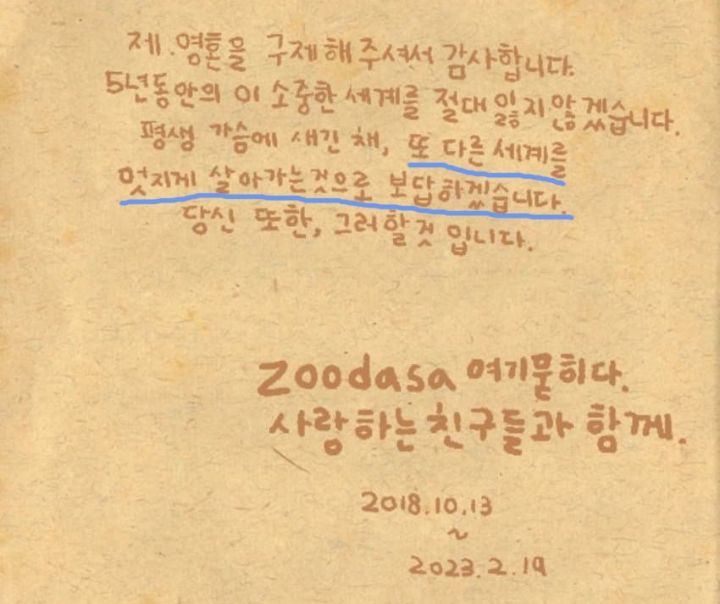 제 영혼을 구제해주셔서 감사합니다.
5년동안의 이 소중한 세계를 절대 잃지않겠습니다.
평생 가슴에 새긴 채, 또 다른 세계를
멋지게 살아가는것으로 보답하겠습니다.
당신 또한, 그러할것 입니다.
zoodasa 여기묻히다.
사랑하는친구들과 함께.
2018.10.13
~
2023.2.19